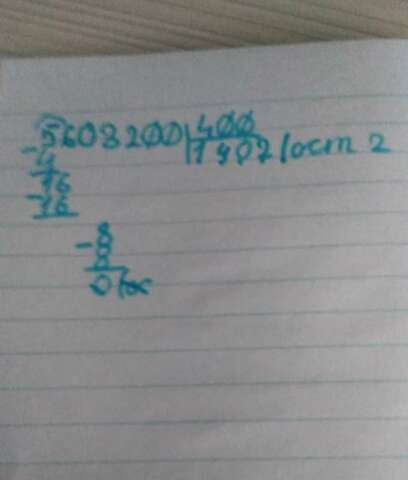 5608200 400
- 4 1402 (ост 2
16
- 16
- 8
8
0 (ос